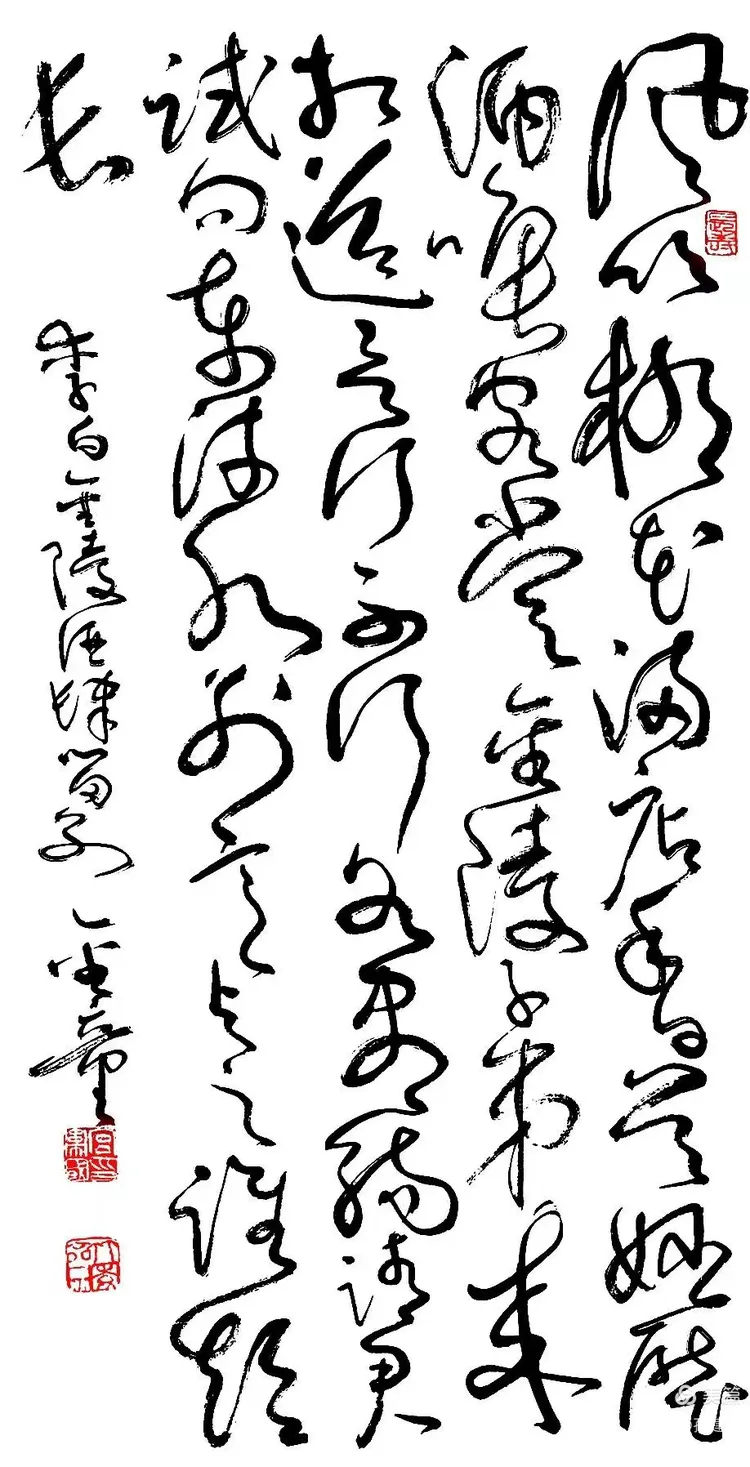 风吹柳花满店香吴姬壓
酒唤客尝金陵子弟来
相送欲行不行各尽觞请君
试问东流水别意与之谁短
长
李白金陵酒肆留别